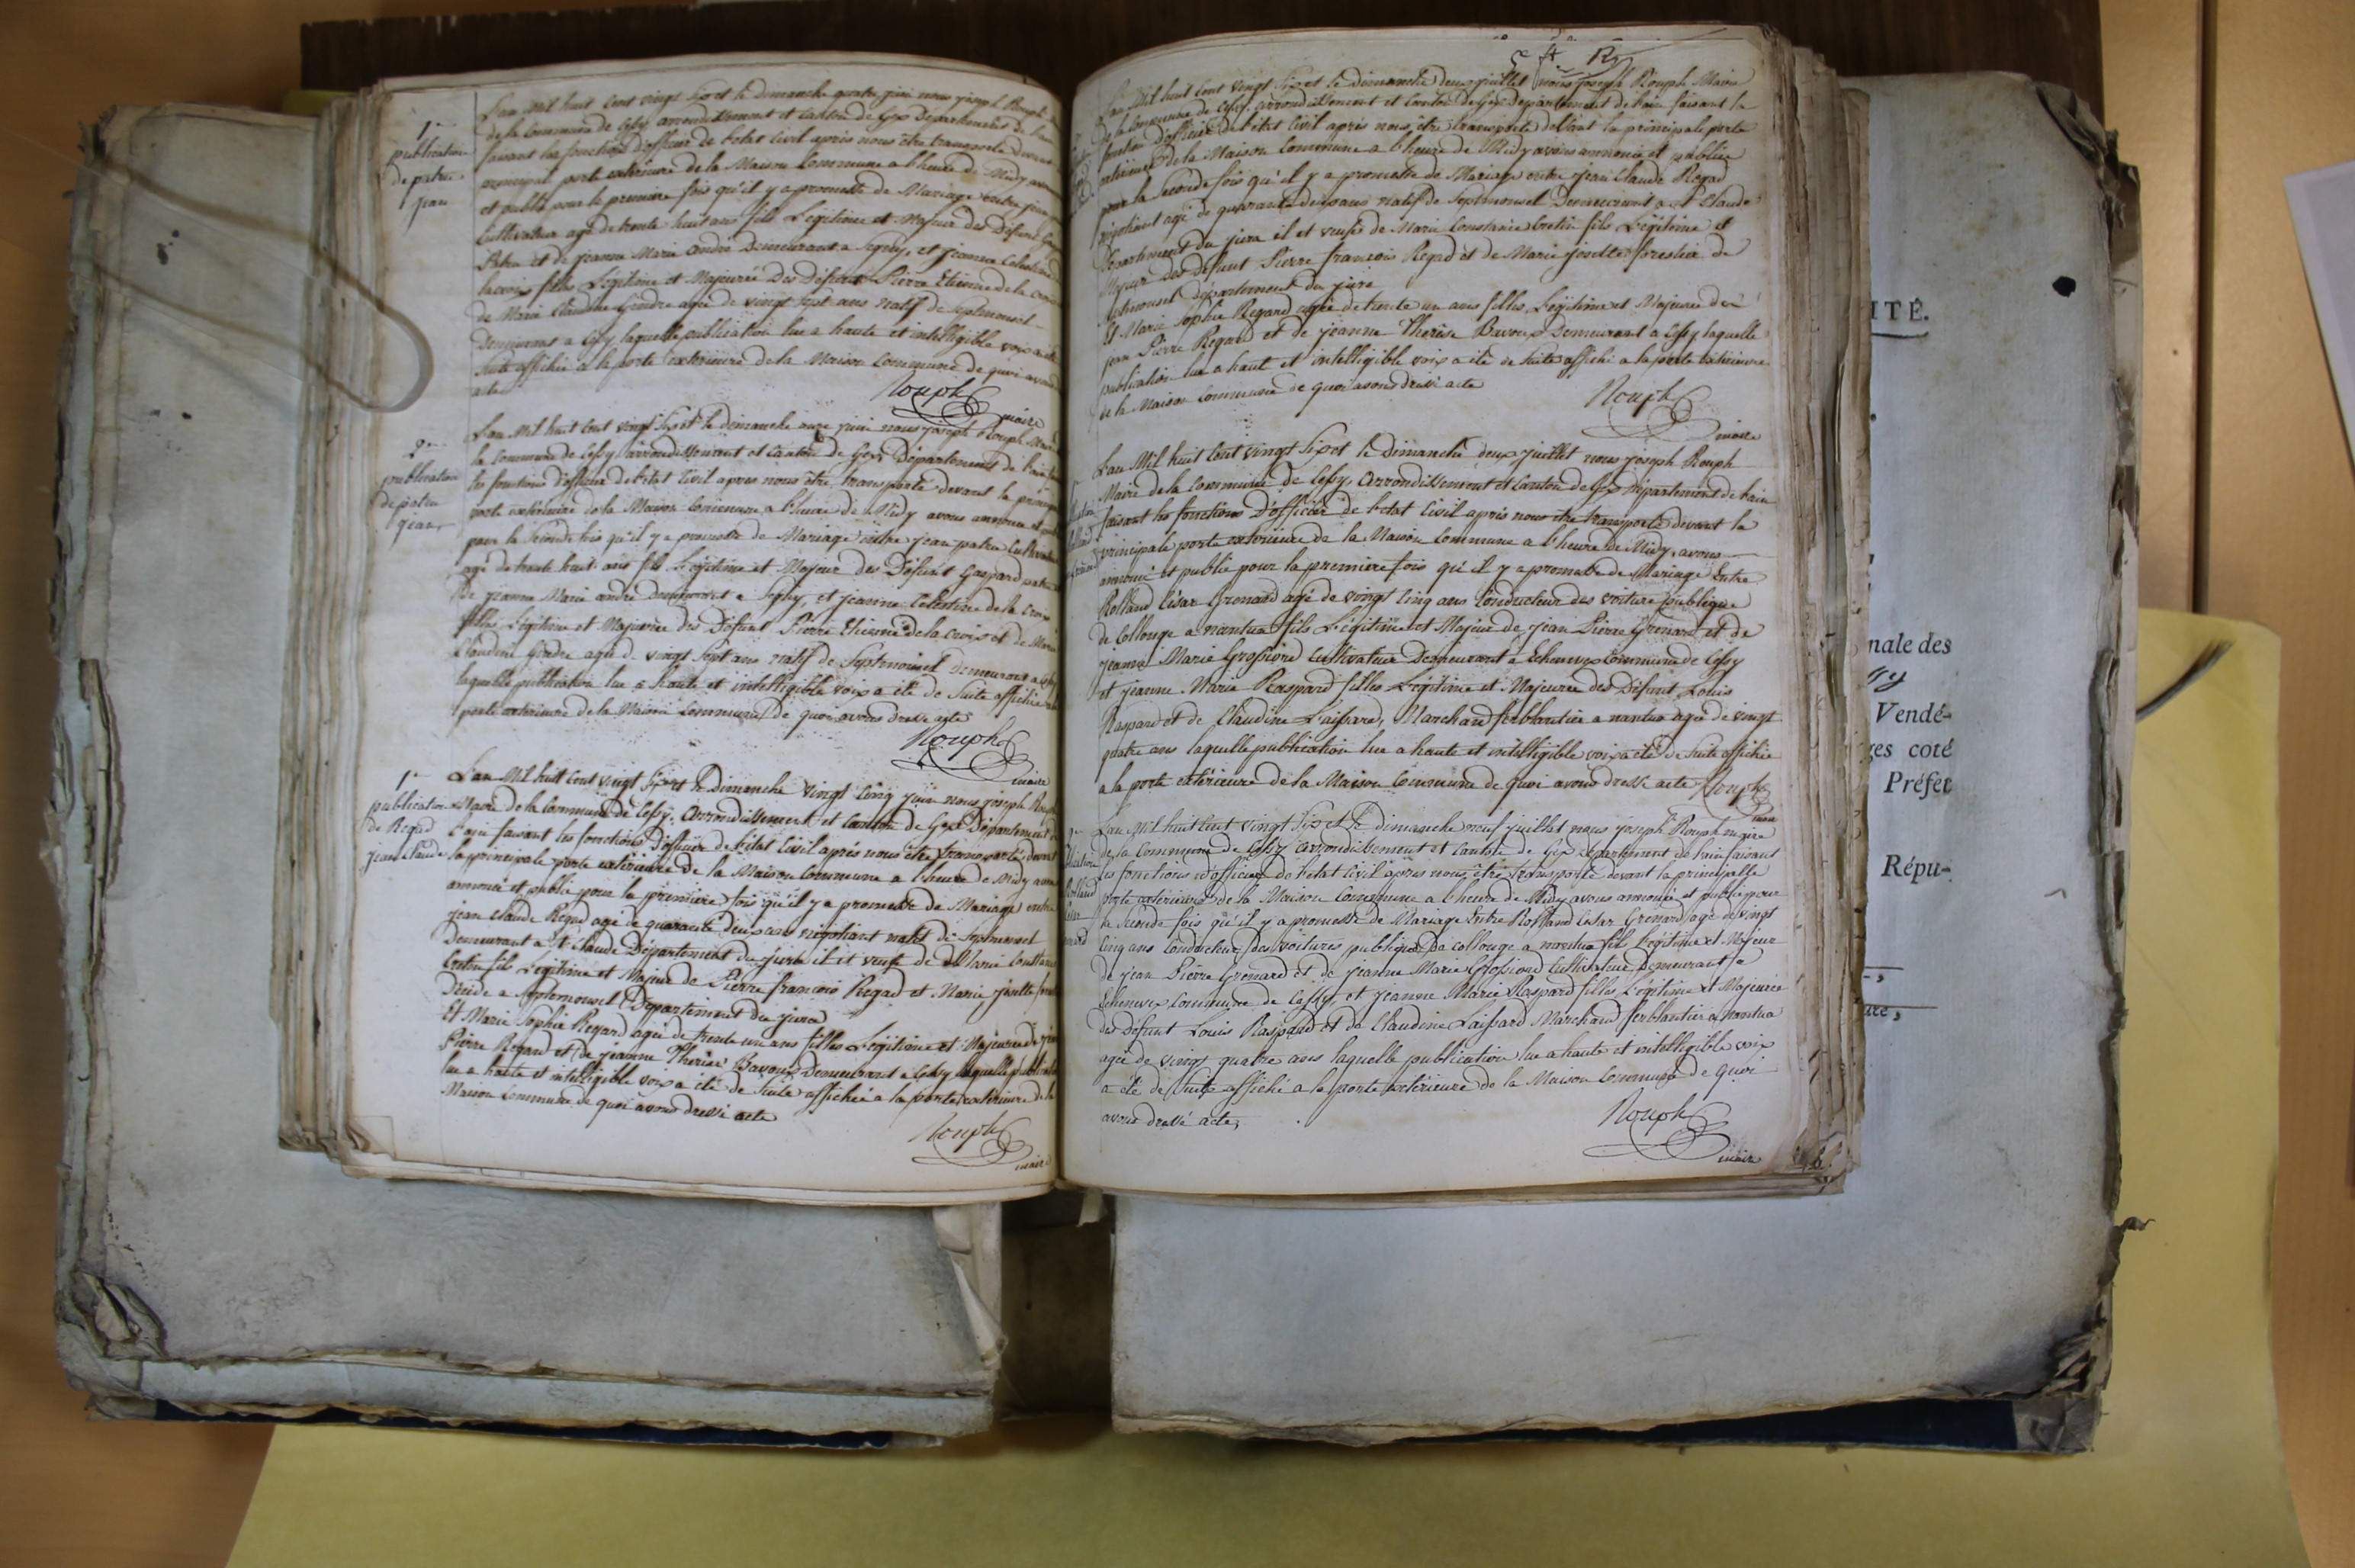 1re
publication
de patru
jean
L'an Mil huit Cent vingt Six et le dimanche quatre juin nous joseph Rouph
de la Commune de Cessy, arrondissement et canton de Gex Département de l'ain
faisant les fonctions d'officier de l'etat Civil après nous être transporté devant
principal porte extérieure de la Maison Commune a l'heure de Midy avons
et publié pour la premiere fois qu'il y a promesse de Mariage entre jean
Cultivateur agé de trente huit ans fils Légitime et Majeur des Défunt
Patru et de jeanne Marie andré Demeurant a Segny, et jeanne Celestine
lacroix filles Légitime et Majeurée Des Défunt Pierre Etienne de la croix
de Marie Claudine Gindre agée de vingt Sept ans natif de Septmoncel
Demeurant a Cessy laquelle publication lue a haute et intelligible voix a été
Suite affichée a la porte extérieure de la Maison Commune de quoi avons
acte
Rouph
maire
2me
publication
de patru
jean
L'an Mil huit Cent vingt Six et le dimanche onze juin nous joseph Rouph Maire
la Commune de Cessy arrondissement et canton de Gex Département de l'ain
les fonctions d'officier de l'etat Civil apres nous être transporté devant la
porte extérieure de la Maison Commune a l'heure de Midy avons annoncé et
pour la Seconde fois qu'il y a promesse de Mariage entre jean patru Cultivateur
agé de trente huit ans fils Légitime et Majeur des Défunt Gaspard patru
De jeanne Marie andré Demeurant a Segny, et jeanne Celestine de la Croix
filles Légitime et Majeurée des Défunt Pierre Etienne de la croix et de Marie
Claudine Gindre agée de vingt Sept ans natif de Septmoncel Demeurant a Cessy
laquelle publication lue a haute et intelligible voix a été de Suite affichée
porte extérieure de la Maison Commune de quoi avons dressé acte
Rouph
maire
1re
publication
de Regad
jean Claude
L'an Mil huit Cent vingt Six et le Dimanche vingt Cinq juin nous joseph
Maire de la Commune de Cessy, Arrondissement et Canton de Gex Département
L'ain faisant les fonctions d'officier de l'etat Civil après nous être transporté devant
la principale porte extérieure de la Maison Commune a l'heure de Midy avons
annoncé et publié pour la première fois qu'il y a promesse de Mariage entre
jean Claude Regad agé de quarante deux ans négotiant natif de Septmoncel
Demeurant a St Claude Département du jura il et veuf de Marie Constance
Cretin fils Légitime et Majeur de Pierre francois Regad et Marie josette
a Septmoncel Département du jura
Et Marie Sophie Regard agée de trente un ans filles Légitime et Majeurée de jean
Pierre Regard et de jeanne Therèse Bavoux Demeurant a Cessy laquelle publication
lue a haute et intelligible voix a été de Suite affichée a la porte extérieure de la
Maison Commune de quoi avons dressé acte
Rouph
maire
L'an Mil huit Cent vingt Six et le Dimanche deux juillet nous joseph Rouph Maire
de la Commune de Cessy, arrondissement et Canton de Gex Département de l'ain faisant la
fonction d'officier de l'etat Civil après nous être transporté devant la principale porte
extérieure de la Maison Commune a l'heure de Midy avons annoncé et publiée
pour la Seconde fois qu'il y a promesse de Mariage entre jean Claude Regad
négotiant agé de quarante deux ans natif de Septmoncel Demeurant a St Claude
Département du jura il et veuf de Marie Constance Cretin fils Légitime et
Majeur Des Défunt Pierre francois Regad et de Marie josette forestier de
Septmoncel département du jura
Et Marie Sophie Regard agée de trente un ans filles Légitime et Majeurée de
jean Pierre Regard et de jeanne Therèse Bavoux Demeurant a Cessy laquelle
publication lue a haut et intelligible voix a été de Suite affiché a la porte extérieure
de la Maison Commune de quoi avons dressé acte
Rouph
maire
L'an Mil huit Cent vingt Six et le Dimanche deux juillet nous joseph Rouph
Maire de la Commune de Cessy, arrondissement et Canton de Gex Département de l'ain
faisant les fonctions D'officier de l'etat Civil après nous être transporté devant la
principale porte extérieure de la Maison Commune a l'heure de Midy, avons
annoncé et publié pour la premiere fois qu'il y a promesse de Mariage Entre
Rolland César Grenard agé de vingt Cinq ans Conducteur des voiture publique
de Collonge a nantua fils Légitime et Majeur de jean Pierre Grenard et de
jeanne Marie Grossiord Cultivateur Demeurant a Echenevex Commune de Cessy
et jeanne Marie Raspard filles Légitime et Majeurée des Défunt Louis
Raspard et de Claudine Laissard, Marchand ferblantier a nantua agée de vingt
quatre ans laquelle publication lue a haute et intelligible voix a été de Suite affichée
a la porte extérieure de la Maison Commune de quoi avons dressé acte Rouph
maire
L'an Mil huit Cent vingt Six et le dimanche neuf juillet nous joseph Rouph maire
de la Commune de Cessy arrondissement et canton de Gex département de l'ain faisant
les fonctions d'officier de l'etat Civil après nous être transporté devant la principalle
porte extérieure de la Maison Commune a l'heure de Midy avons annoncé et publié pour
la Seconde fois qu'il y a promesse de Mariage Entre Rolland César Grenard agé de vingt
Cinq ans Conducteur des voitures publique De collonge a nantua fils Légitime et Majeur
de jean Pierre Grenard et de jeanne Marie Grossiord Cultivateur Demeurant a
Echenevex Commune de Cessy, et jeanne Marie Raspard filles Légitime et Majeurée
des Défunt Louis Raspard et de Claudine Laissard Marchand ferblantier a Nantua
agée de vingt quatre ans laquelle publication lue a haute et intelligible voix
a été de Suite affiché a la porte extérieure de la Maison Commune de quoi
avons dressé acte,
Rouph
maire
ITÉ.
nale des
Vendé-
ges coté
Préfet
Répu-